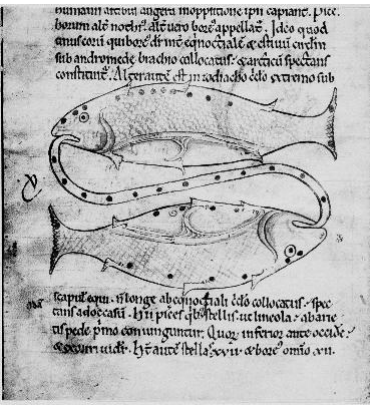 humani
horum alt noth⁹ alt vero bore⁹ appellat. Ideo quod
un⁹ eorū qui bore⁹ dr̄ int̄ eq̄noctialē & estivū circlm
sub andromede brachio collocatus. & arcticū spectans
constituit᷑. Alter autē est in zodiacho c̄clo extremo sub
scapul equi. n̄ longe ab eq̄noctiali c̄clo collocatus. spec
tans ad occasū. Hii pisces stellis. ut lineola. ab arie
tis pede p̄mo coniunguntur. Quor inferior ante occide
& exoriri videt᷑. Ht̄ autē stellas xvii. & bore⁹ om̄ino xii.